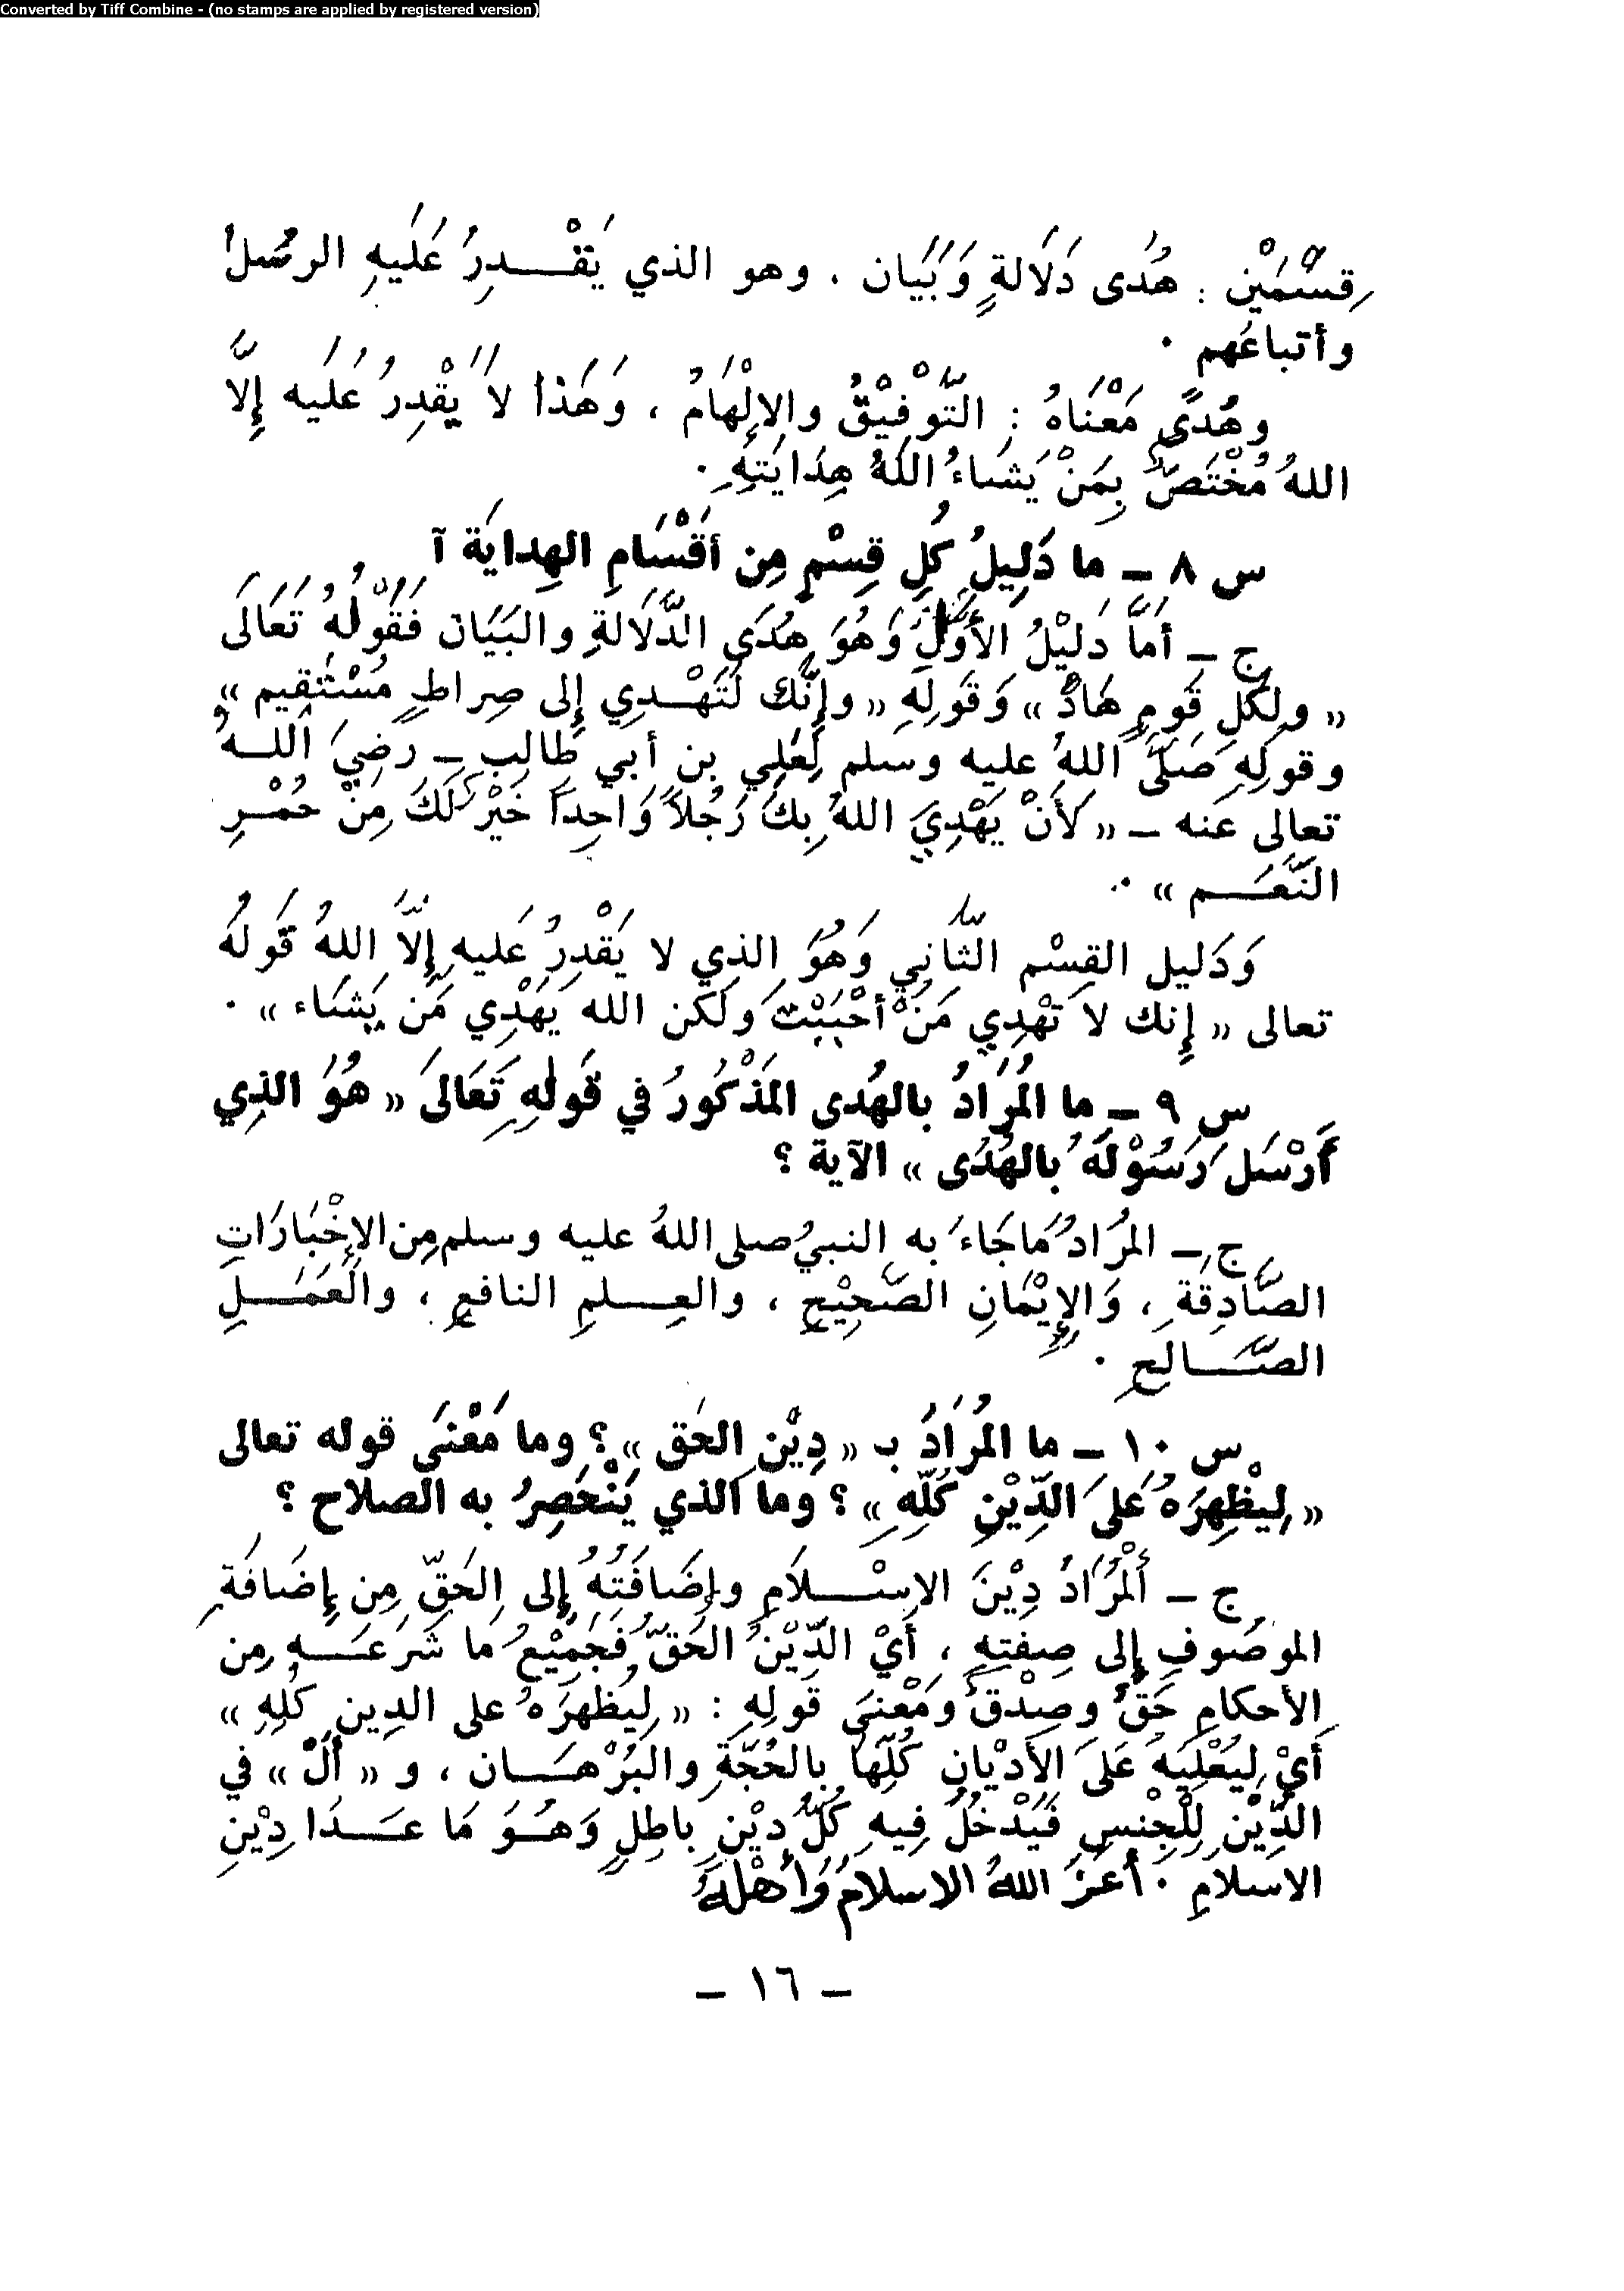 Converted by Tiff Combine - (no stamps are applied by registered version)
قِسْمَيْنِ : هُدى دَلَالةٍ وَبَيَان ، وهو الذي يَقْـــدِرُ عَلَيهِ الرسُلُ
وأتباعُهم .
وهُدىً مَعْنَاهُ : التَّوْفِيْقُ والإِلْهَامُ ، وَهَذا لَا يَقْدِرُ عَليه إِلَّا
اللهُ مُخْتَصٌّ بِمَنْ يَشاءُ اللهُ هِدَايَتِهِ .
س ٨ ــ ما دَلِيلُ كُلِ قِسْمٍ مِن أقْسَامِ الهِدايَة آ
ج ــ أمَّا دَلِيْلُ الأَوَّلِ وَهُوَ هُدَى الدَّلَالةِ والبَيَان فَقَوْلُهُ تَعَالَى
« ولِكُلِ قَومٍ هَادٌ » وَقَولِهِ « وإِنَّك لَتَهْــدِي إِلى صِراطٍ مُسْتَقِيم »
وقولِهِ صَلَّى اللهُ عليه وسلم لِعَلِي بن أبي طَالِبٍ ــ رَضِيَ اللـهُ
تعالى عَنه ــ « لَأَنْ يَهْدِيَ اللهُ بِكَ رَجُلاً وَاحِداً خَيْرٌ لَكَ مِنْ حُمْـرِ
النَّعَــم » .
وَدَليل القِسْم الثَّانِي وَهُوَ الذِي لا يَقْدِرُ عَليه إِلَّا اللهُ قَولُهُ
تعالى « إِنك لا تَهْدِي مَنْ أحْبَبْتَ ولكن الله يَهْدِي مَن يَشَاء » .
س ٩ ــ ما المُرَادُ بالهُدى المَذْكُورُ في قَولِهِ تَعَالَى « هُوَ الذِي
أَرْسَلَ رَسُوْلَهُ بالهُدَى » الآية ؟
ج ــ المُرَادُ مَاجَاءَ به النبيُ صلى اللهُ عليه وسلم مِن الإِخْبَارَاتِ
الصَّادِقةِ ، وَالإِيْمَانِ الصَّحِيْحِ ، والعِــلمِ النافعِ ، والعَمَــلِ
الصَّــالِحِ .
س ١٠ ــ ما المُرَادُ بـ « دِيْن الحَق » ؟ وما مَعْنَى قوله تعالى
« لِيُظْهِرَهُ عَلَى الدِّيْنِ كُلِّهِ » ؟ وما الذي يَنْحَصِرُ به الصلاح ؟
ج ــ أَلْمُرَادُ دِيْنَ الإسْــلَامِ وإضَافَتُهُ إِلى الحَقِّ مِن إِضَافَةِ
الموصُوفِ إِلى صِفتِهِ ، أَيْ الدِّيْنُ الحَقّ فَجَمِيْعُ ما شَرَعَــه مِن
الأحكامِ حَقٌ وصِدْقٌ وَمَعْنَى قَولِهِ : « لِيُظهِرَهُ على الدِين كُلِهِ »
أَيْ لِيُعْلِيَهُ عَلَى الأَدْيَانِ كُلِّهَا بِالحُجَّةِ والبُرْهَــان ، و « أَلْ » في
الدِّيْنِ لِلْجِنْسِ فَيَدْخُلُ فِيهِ كُلُّ دِيْنٍ بِاطِلٍ وَهُــوَ مَا عَــدَا دِيْنِ
الاسْلَامِ . أعَزَّ اللهُ الاسلامَ وَأَهْلَهُ
ــ ١٦ ــ